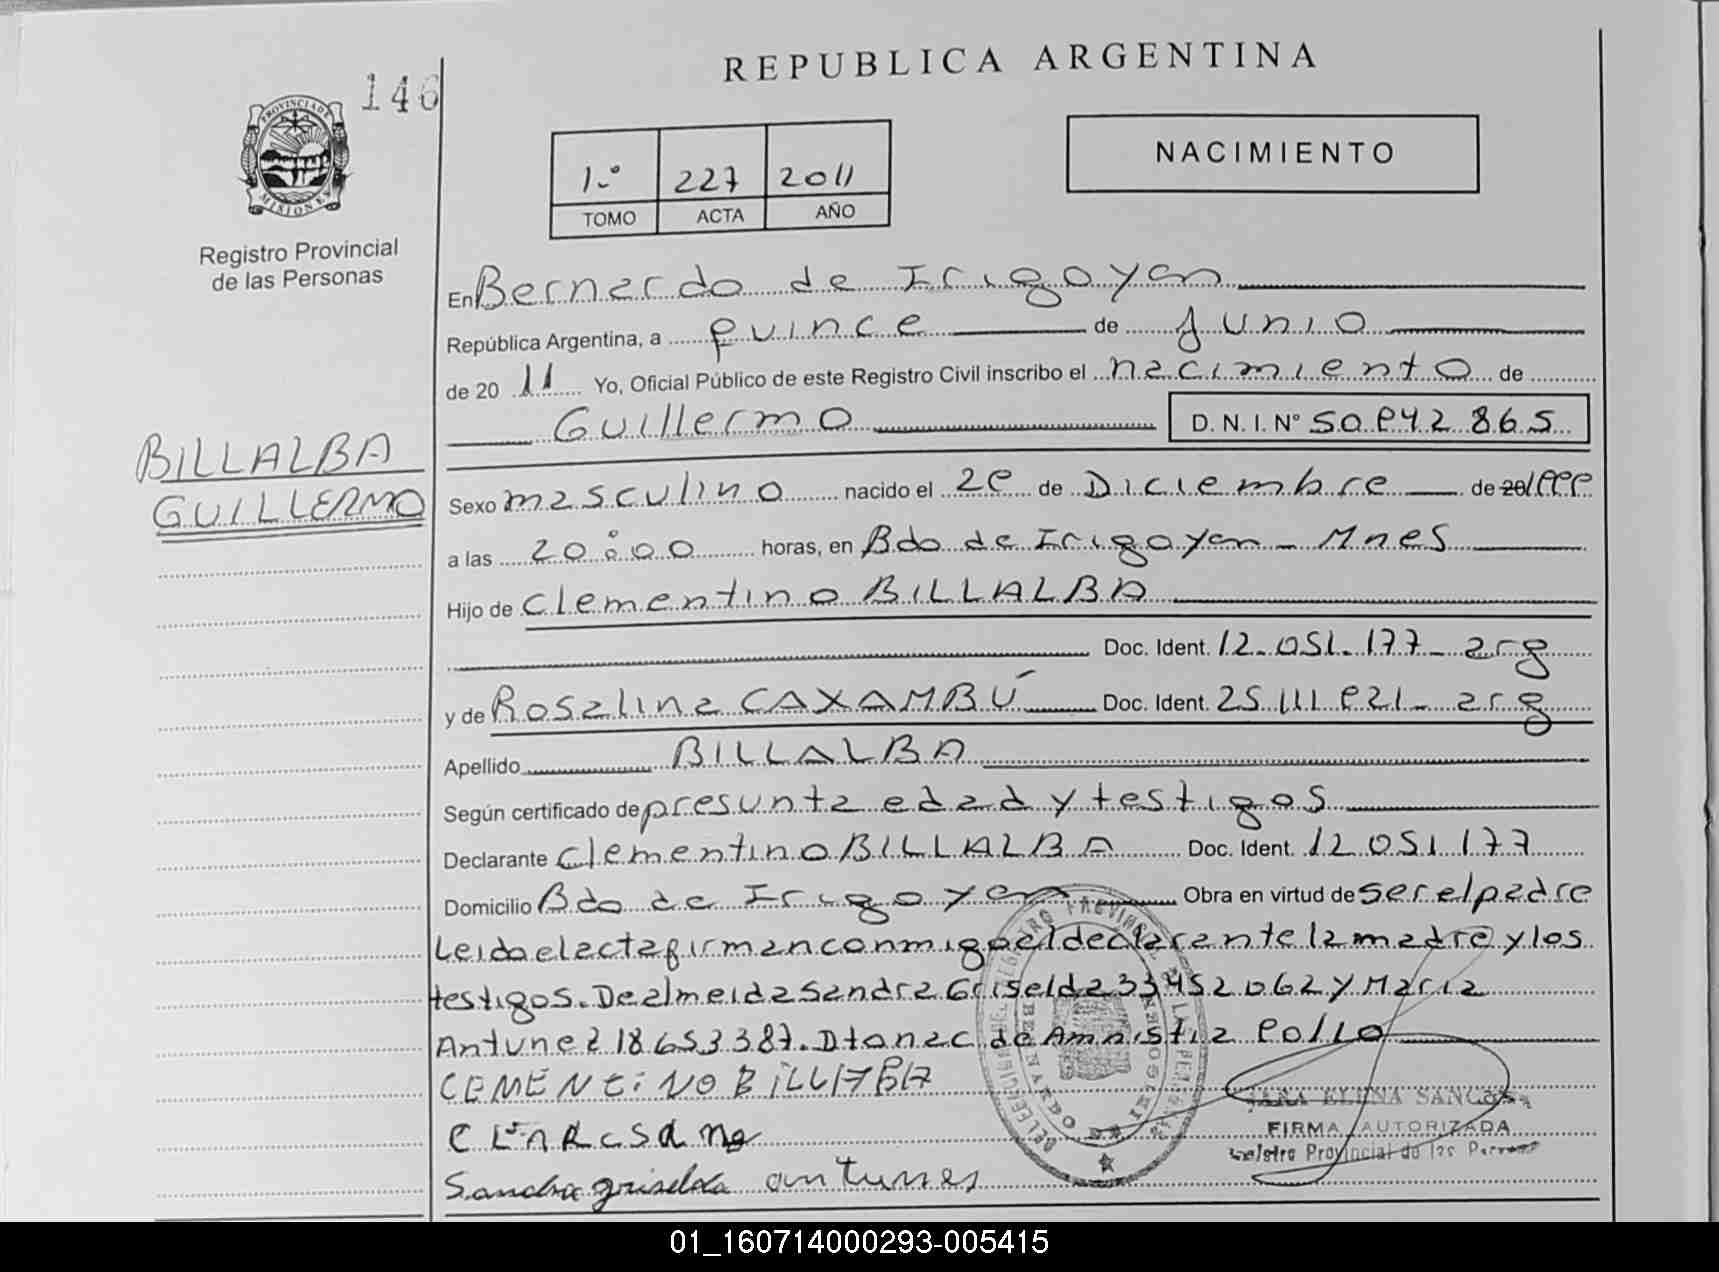 REPUBLICA ARGENTINA
146
PROVINCIA DE
MISIONES
Registro Provincial
de las Personas
1º 227 2011
TOMO ACTA AÑO
NACIMIENTO
En Bernardo de Irigoyen
República Argentina, a quince de Junio
de 20 11 Yo, Oficial Público de este Registro Civil inscribo el nacimiento de
Guillermo D. N. I. Nº 50.942.865
BILLALBA
GUILLERMO
Sexo masculino nacido el 29 de Diciembre de 20/1999
a las 20:00 horas, en Bdo de Irigoyen - Mnes
Hijo de Clementino BILLALBA
Doc. Ident. 12.051.177 - arg
y de Rosalina CAXAMBÚ Doc. Ident. 25 111 921 - arg
Apellido BILLALBA
Según certificado de presunta edad y testigos
Declarante Clementino BILLALBA Doc. Ident. 12 051 177
Domicilio Bdo de Irigoyen Obra en virtud de ser el padre
Leida el acta firman conmigo el declarante la madre y los
testigos. De almeida Sandra Griselda 33452062 y Maria
Antunez 18653387. Dto nac de Amnistia 90/10
CEMENtiNO BiLLABA
Sandra griselda antunes
FIRMA AUTORIZADA
Registro Provincial de las Personas
01_160714000293-005415